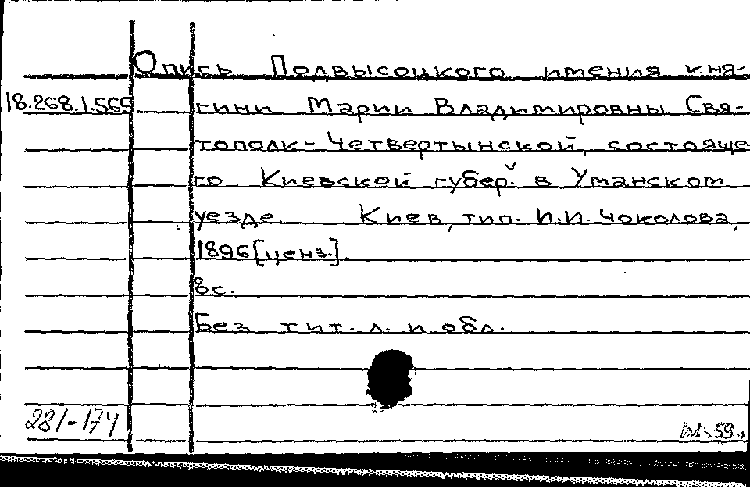 Опись Подвысоцкого имения кня-
18.268.1.565 гини Марии Владимировны Свя-
тополк-Четвертынской, состояще
го Киевской губер. в Уманском
уезде. Киев, тип. И.И. Чоколова,
1896 [ценз.].
8с.
Без тит. л. и обл.
281-174